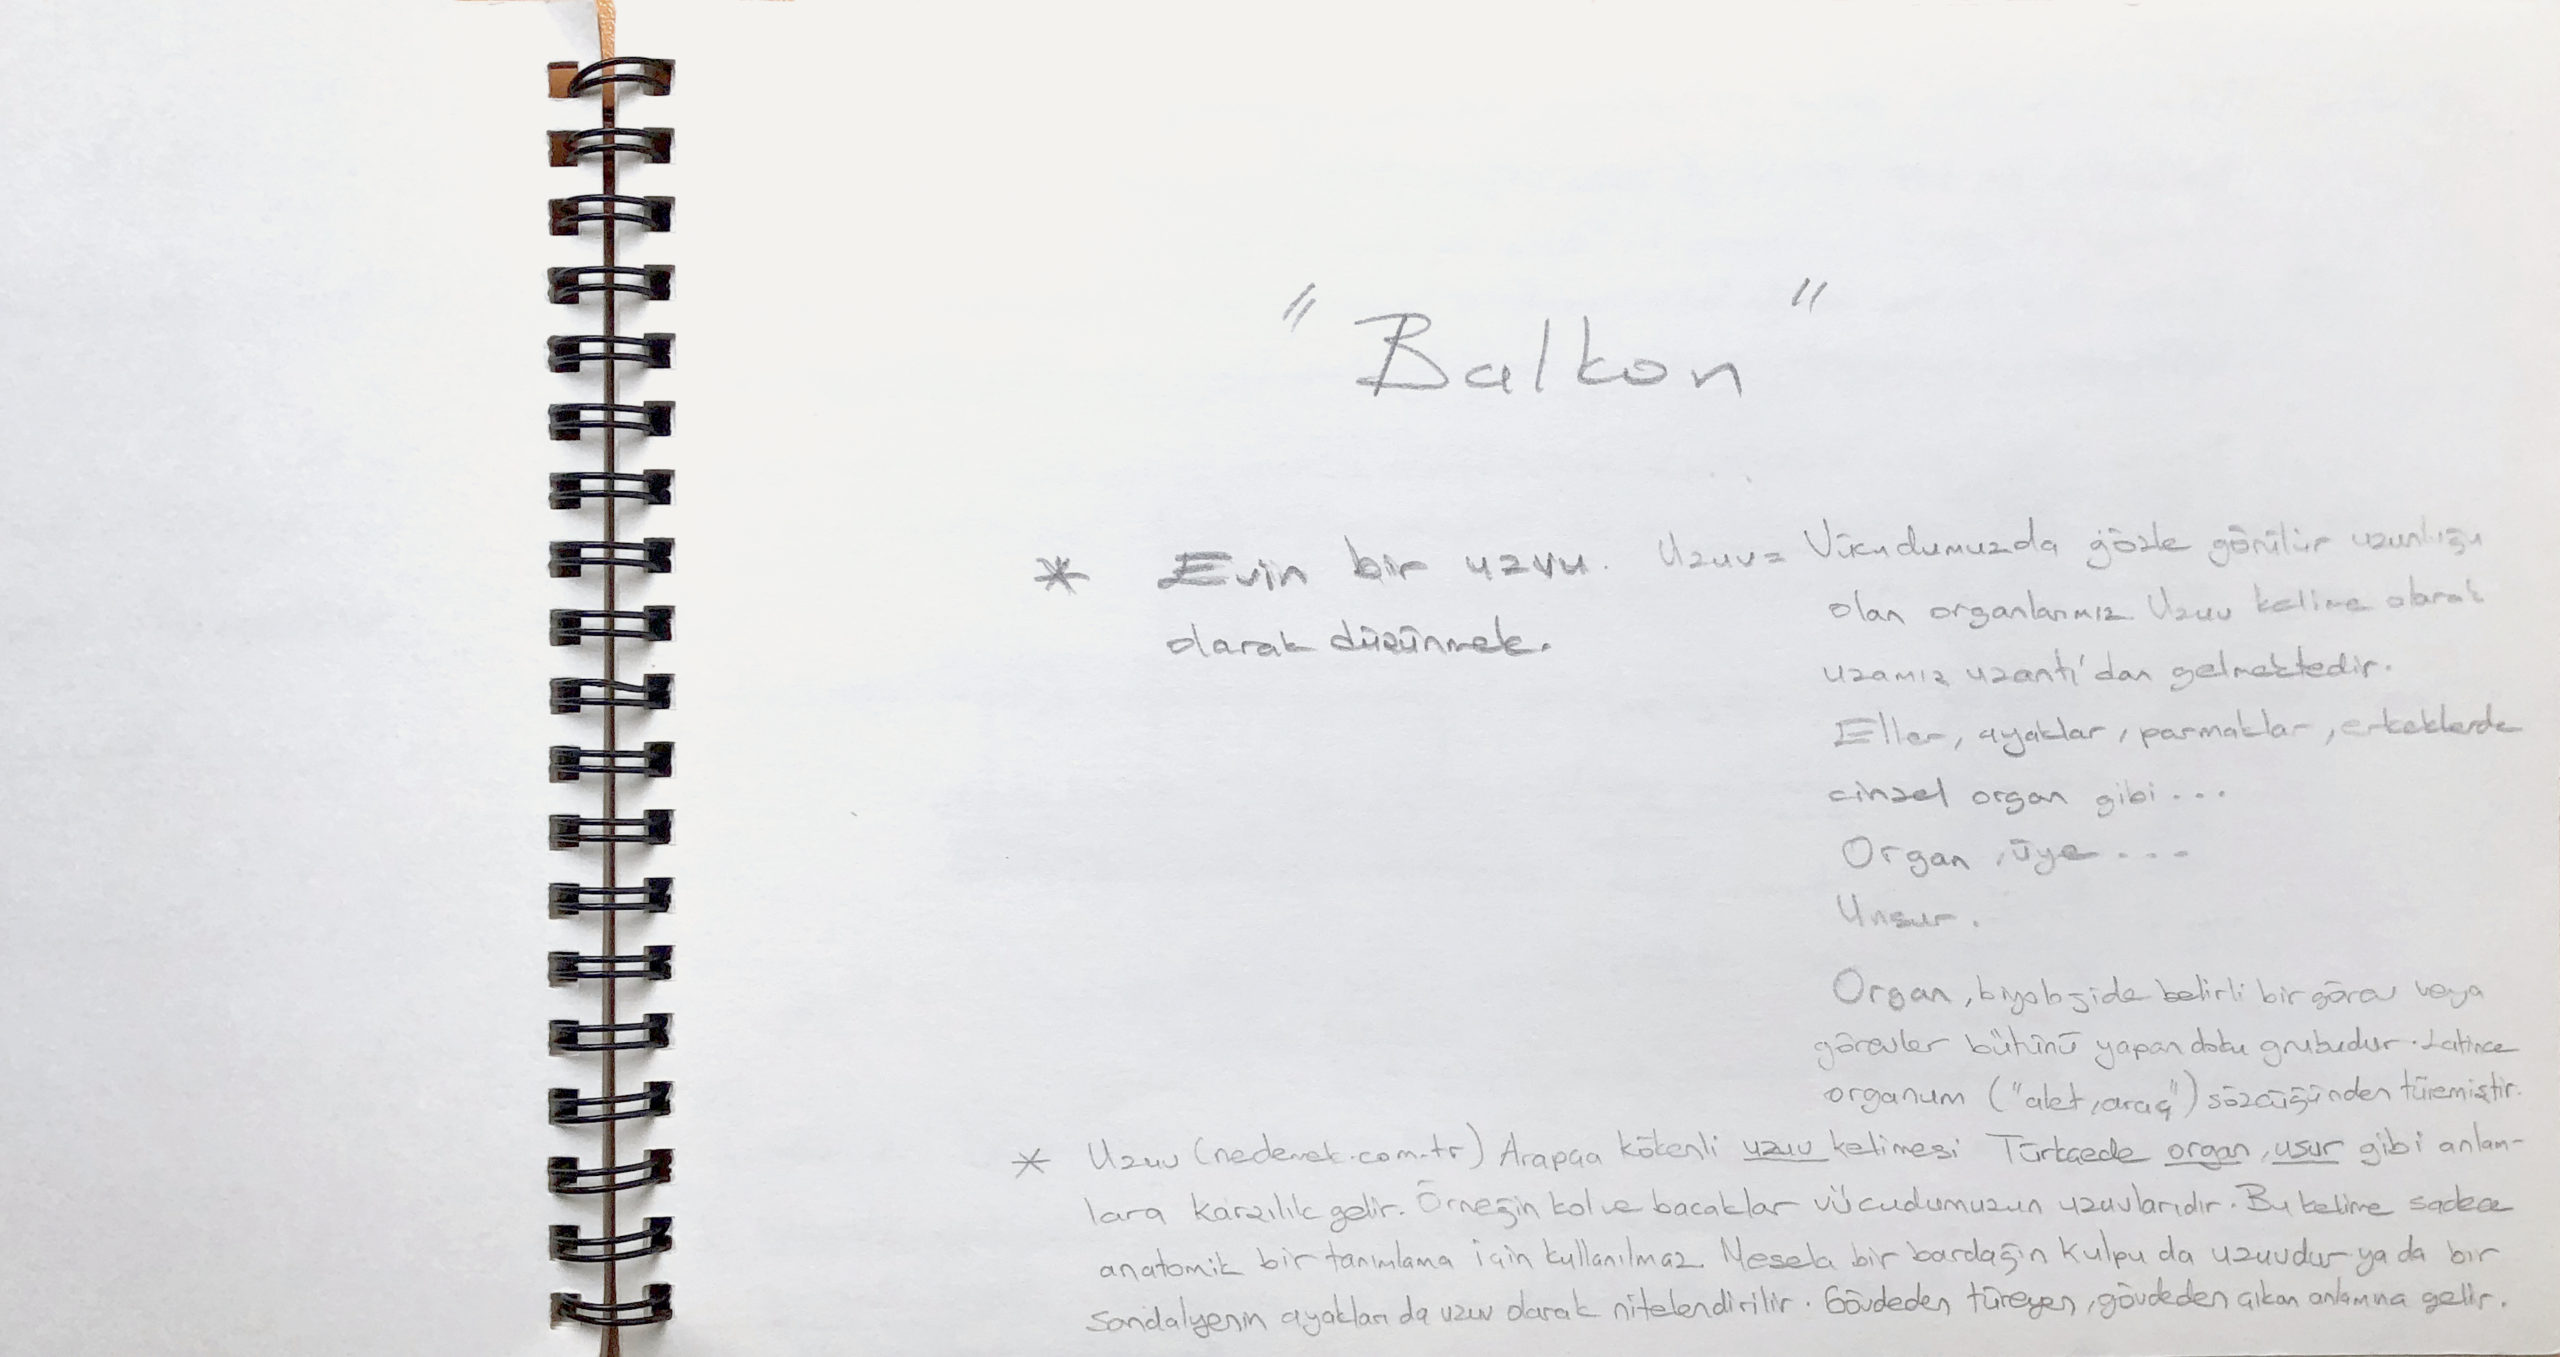 "Balkon"
* Evin bir uzvu.
olarak düşünmek.
Uzuv= Vücudumuzda gözle görülür uzunluğu
olan organlarımız Uzuv kelime olarak
uzamız uzantı'dan gelmektedir.
Eller, ayaklar, parmaklar, erkeklerde
cinsel organ gibi...
Organ, üye...
Unsur.
Organ, biyolojide belirli bir görev veya
görevler bütünü yapan doku grubudur. Latince
organum ("alet, araç") sözcüğünden türemiştir.
* Uzuv (nedemek.com.tr) Arapça kökenli uzuv kelimesi Türkçede organ, usur gibi anlam-
lara karşılık gelir. Örneğin kol ve bacaklar vücudumuzun uzuvlarıdır. Bu kelime sadece
anatomik bir tanımlama için kullanılmaz. Mesela bir bardağın kulpu da uzuvdur ya da bir
sandalyenin ayakları da uzuv olarak nitelendirilir. Gövdeden türeyen, gövdeden çıkan anlamına gelir.